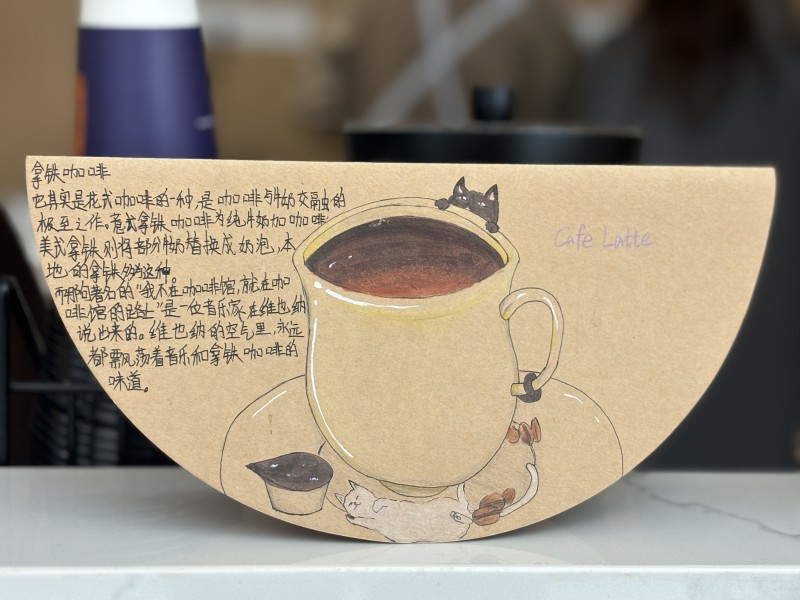 拿铁咖啡
它其实是花式咖啡的一种,是咖啡与牛奶交融的
极至之作。意式拿铁咖啡为纯牛奶加咖啡
美式拿铁则将部分牛奶替换成奶泡,本
地的拿铁多为这种
而那句著名的“我不在咖啡馆,就在咖
啡馆的路上”是一位音乐家在维也纳
说出来的。维也纳的空气里,永远
都飘荡着音乐和拿铁咖啡的
味道。
Cafe Latte